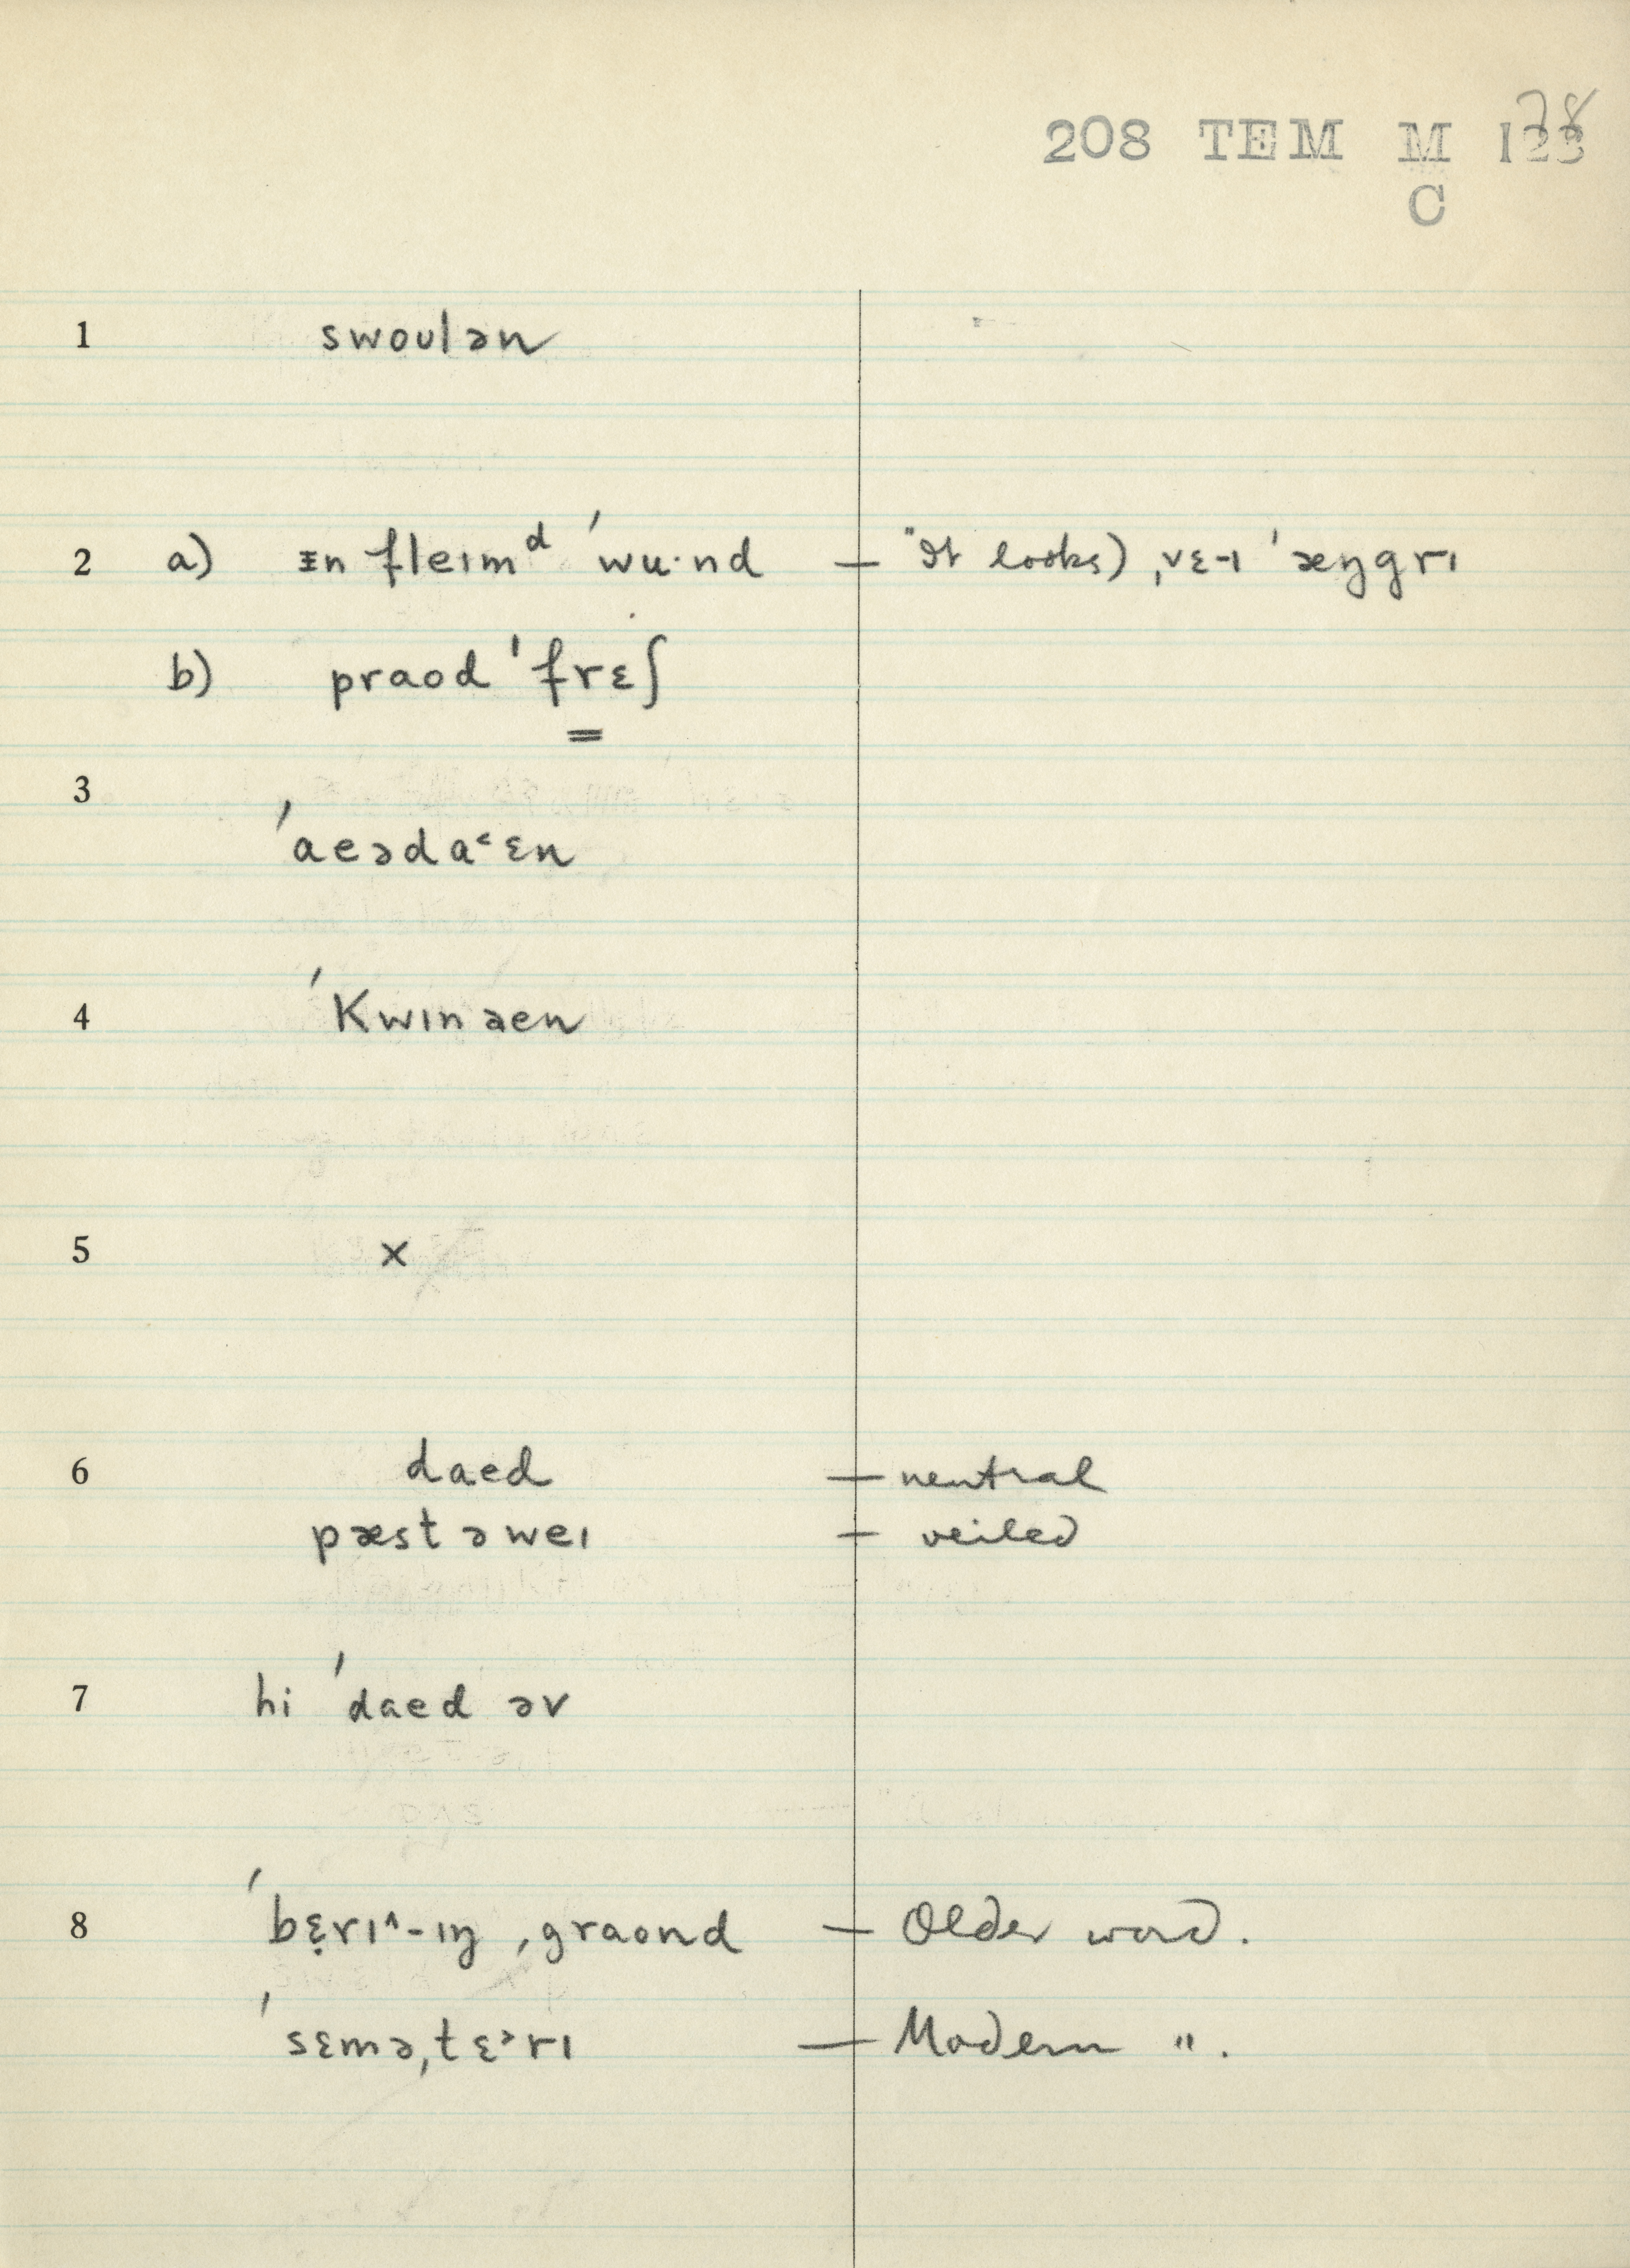 208 TEM M 123
78
C
1 swoulən
2 a) ɪn fleɪmᵈ ˈwu·nd — "It looks) ˌvɛ-ɪ ˈæŋgrɪ
b) praod ˈfrɛʃ
3 ˈaeəda˂ɛn
4 ˈKwɪnaen
5 x
6 daed — neutral
pæst ə weɪ — veiled
7 hi ˈdaed əv
8 ˈbɛ̣rɪ^-ɪŋ ˌgraond — Older word.
ˈsɛməˌtɛ˃rɪ — Modern ".